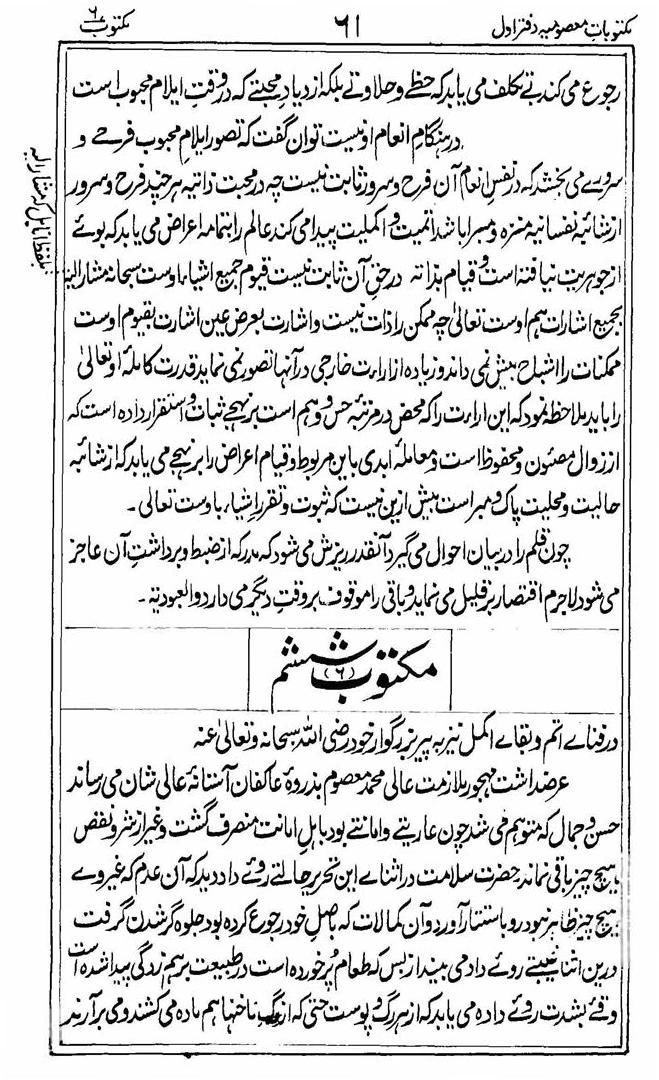 مکتوباتِ معصومیہ دفتر اول
۶۱
مکتوب ۶
رجوع می کند بے تکلف می یابد کہ حظے و حلاوتے بلکہ ازدیادِ محبتے کہ در وقتِ ایلامِ محبوب است
در ہنگامِ انعامِ او نیست توان گفت کہ تصورِ ایلامِ محبوب فرحے و
سرورے می بخشد کہ در نفسِ انعام آن فرح و سرور ثابت نیست چہ در محبتِ ذاتیہ ہر چند فرح و سرور
از شائبۂ نفسانیہ منزہ و مبرا باشد اتمیت و اکملیت پیدا می کند عالم را بتمامہ اعراض می یابد کہ بوئے
از جوہریت نیافتہ است و قیام بذاتہ در حقِ آن ثابت نیست قیومِ جمیعِ اشیاء اوست سبحانہ مشار الیہ
بجمیع اشارات ہم اوست تعالیٰ چہ ممکن را ذات نیست و اشارت بعرض عین اشارت بقیوم اوست
ممکنات را اشباح بیش نمی داند و زیادہ از اراءتِ خارجی در آنہا تصور نمی نماید قدرتِ کاملۂ او تعالیٰ
را باید ملاحظہ نمود کہ این اراءت را کہ محض در مرتبۂ حس و وہم است بر نہجے ثبات و استقرار دادہ است کہ
از زوال مصئون و محفوظ است و معاملۂ ابدی باین مربوط و قیامِ اعراض را بر نہجے می یابد کہ از شائبہ
حالیت و محلیت پاک و مبرا است بیش ازین نیست کہ ثبوت و تقررِ اشیاء باوست تعالی۔
چون قلم را در بیانِ احوال می گیرد آنقدر ریزش می شود کہ مدرکہ از ضبط و برداشتِ آن عاجز
می شود لاجرم اقتصار بر قلیل می نماید و باقی را موقوف بر وقتِ دیگر می دارد والعبودیۃ۔
مکتوب ششم
(۶)
در فنائے اتم و بقائے اکمل نیز بہ پیر بزرگوارِ خود رضی اللہ سبحانہ و تعالیٰ عنہ
عرضداشت مہجورِ ملازمتِ عالی محمد معصوم بذروۂ عاکفانِ آستانۂ عالی شان می رساند
حسن و جمال کہ متوہم می شد چون عاریتے و امانتے بود باہلِ امانت منصرف گشت و غیر از شر و نقص
ہیچ چیز باقی نماند حضرت سلامت در اثنائے این تحریر حالتے روئے داد دید کہ آن عدم کہ غیر وے
ہیچ چیز ظاہر نبود رو باستتار آورد و آن کمالات کہ باصلِ خود رجوع کردہ بود جلوہ گر شدن گرفت
درین اثنا غیبتے روئے داد می بیند از بس کہ طعام پُر خوردہ است در طبیعت برہم زدگی پیدا شدہ است
و قئے بشدت روئے دادہ می یابد کہ از ہر رگ و پوست حتی کہ از ناخنہا ہم مادہ می کشند و می برآرند